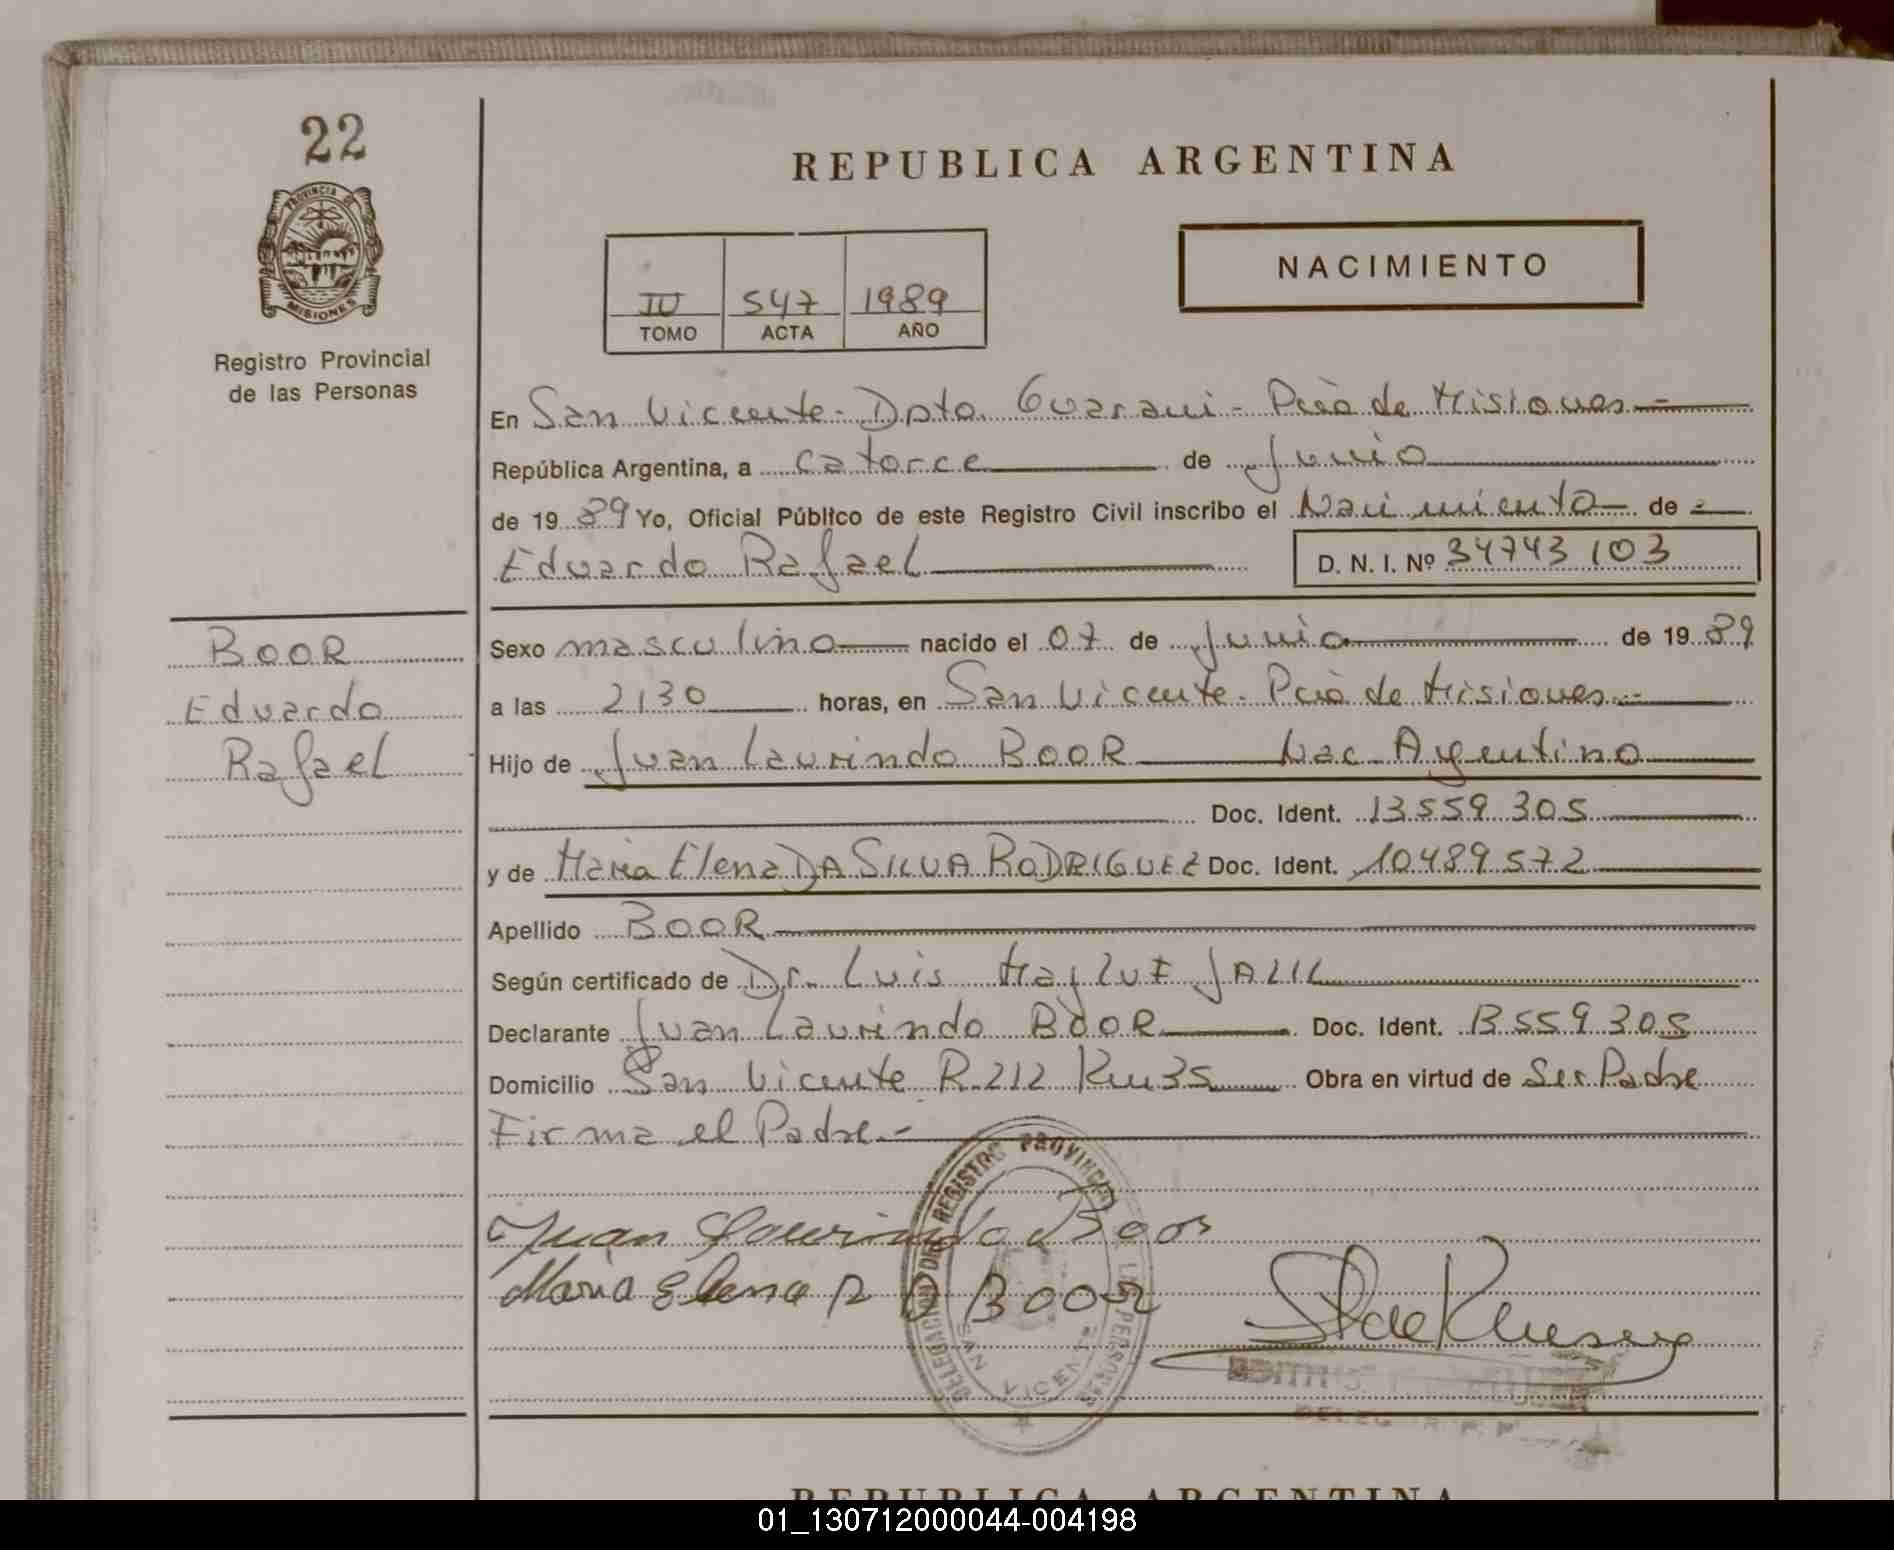 22
PROVINCIA DE
MISIONES
Registro Provincial
de las Personas
REPUBLICA ARGENTINA
NACIMIENTO
IV 547 1989
TOMO ACTA AÑO
En San Vicente - Dpto. Guarani - Pcia de Misiones
República Argentina, a catorce de Junio
de 1989 Yo, Oficial Público de este Registro Civil inscribo el Nacimiento de
Eduardo Rafael D. N. I. Nº 34743103
BOOR
Eduardo
Rafael
Sexo masculino nacido el 07 de Junio de 1989
a las 2130 horas, en San Vicente - Pcia de Misiones
Hijo de Juan Laurindo BOOR Nac Argentino
Doc. Ident. 13.559.305
y de Maria Elena DA SILVA RODRIGUEZ Doc. Ident. 10.489.572
Apellido BOOR
Según certificado de Dr. Luis JALIL
Declarante Juan Laurindo BOOR Doc. Ident. 13.559.305
Domicilio San Vicente R.212 Km35 Obra en virtud de Ser Padre
Firma el Padre.-
DELEGACION DEL REGISTRO PROVINCIAL LAS PERSONAS
SAN VICENTE
Juan Laurindo Boor
Maria Elena R D Boor
REPUBLICA ARGENTINA
01_130712000044-004198